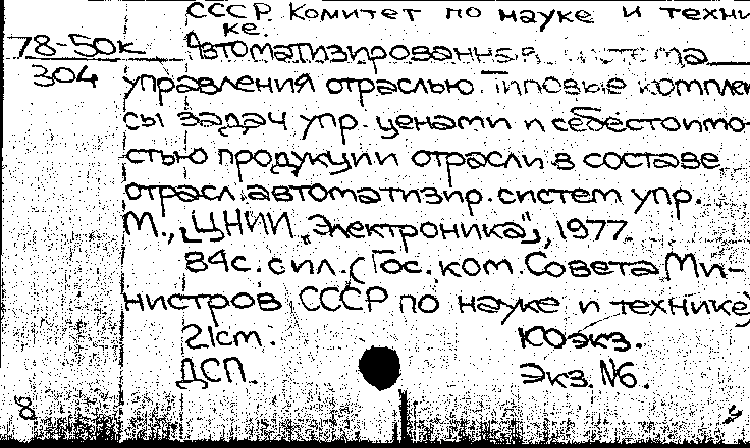 СССР. Комитет по науке и техни-
ке.
78-50к
304
Автоматизированная система
управления отраслью. Типовые комплек
сы задач упр. ценами и себестоимо-
стью продукции отрасли в составе
отрасл. автоматизир. систем упр.
М., ЦНИИ "Электроника", 1977.
84с. с ил. (Гос. ком. Совета Ми-
нистров СССР по науке и технике)
21см.
ДСП.
Экз. №6.